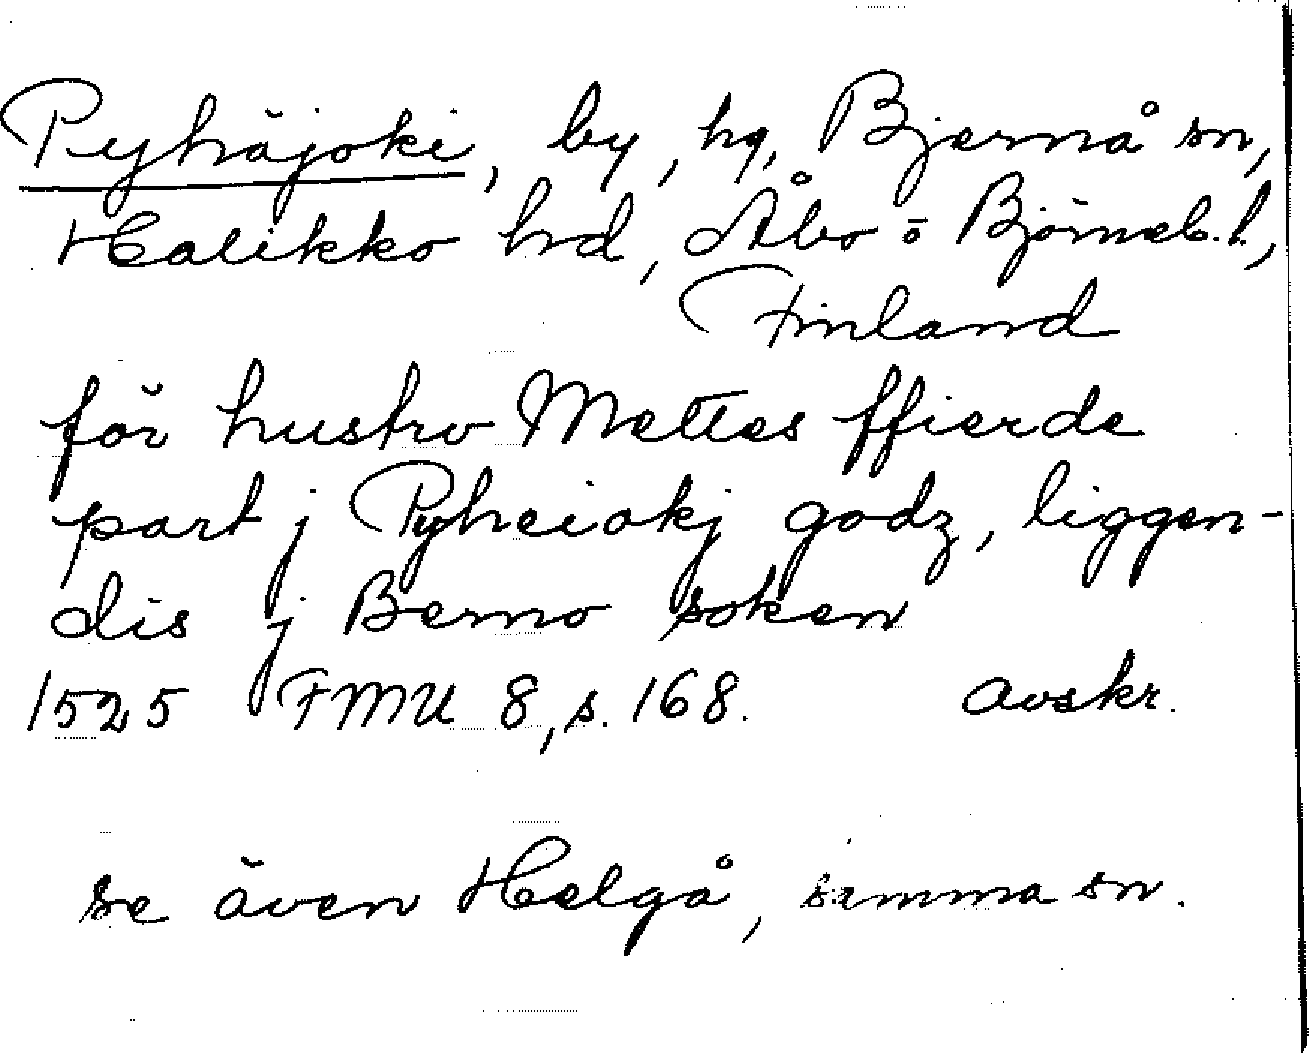 Pyhäjoki, by, hg, Bjernå sn,
Halikko hd, Åbo o Björneb. l.,
Finland
för hustro Mettes ffierde
part j Pyheiokj godz, liggen-
dis j Berno soken
1525 FMU 8, s. 168. avskr.
se även Helgå, samma sn.